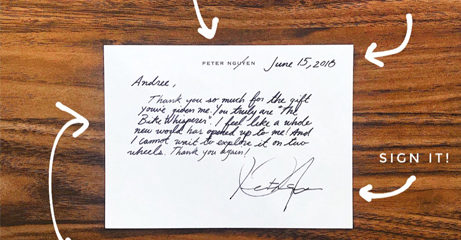 PETER NGUYEN
June 15, 2018
Andree,
Thank you so much for the gift
you've given me. You truly are "The
Bike Whisperer". I feel like a whole
new world has opened up to me! And
I cannot wait to explore it on two
wheels. Thank you again!
SIGN IT!